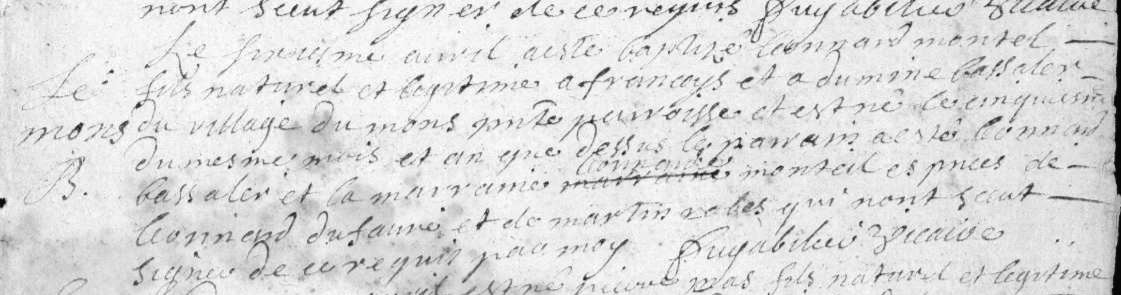 nont sceut signer de ce requis Puyabilier Vicaire
Le sixiesme avril a esté baptizé Leonnard montel
Le fils naturel et legitime a françoys et a dumine bassaler
mons du village du mons pnte parroisse et est né le cinquiesme
du mesme mois et an que dessus le parrain a esté Leonnard
B. bassaler et la marraine Leonnarde monteil es pnces de
Leonnard dufaure et de martin robes qui nont sceut
signer de ce requis par moy Puyabilier Vicaire
est né pierre mas fils naturel et legitime